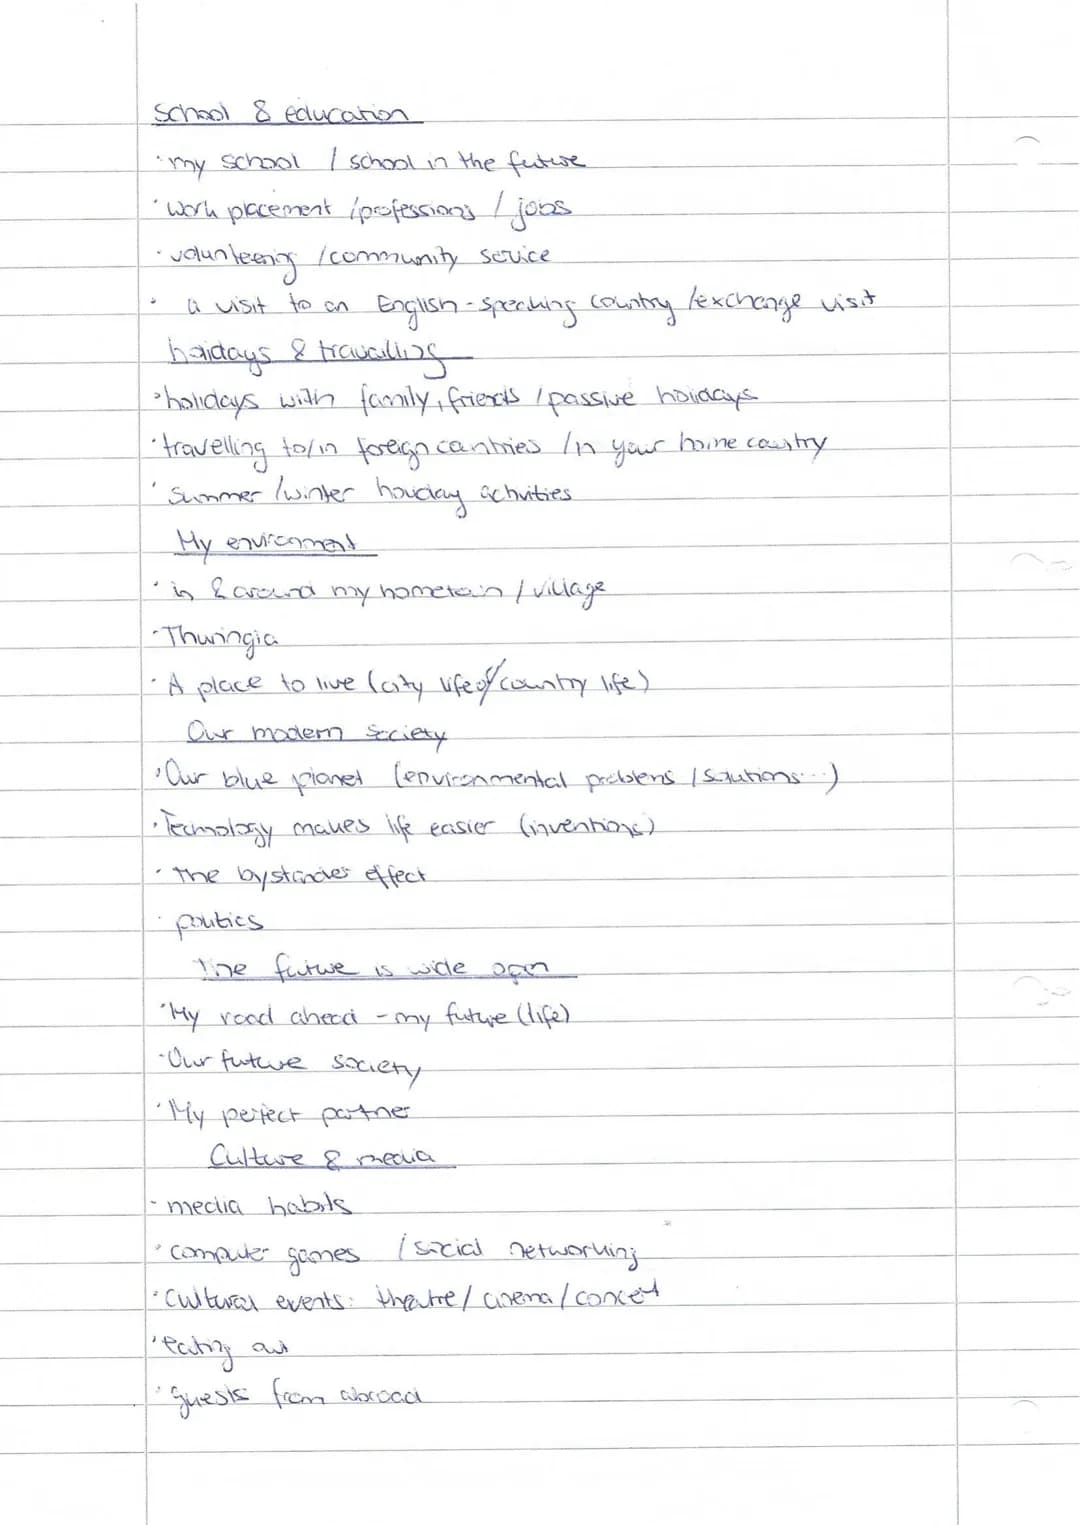 School & education
· my school / school in the future
· work placement / professions / jobs
· volunteering / community service
· a visit to an English-speaking country / exchange visit
holidays & travelling
· holidays with family, friends / passive holidays
· travelling to/in foreign countries / in your home country
· Summer / winter holiday activities
My environment
· in & around my hometown / village
· Thuringia
· A place to live (city life / country life)
Our modern society
· Our blue planet (environmental problems / solutions...)
· Technology makes life easier (inventions)
· The bystander effect
· politics
The future is wide open
· My road ahead - my future (life)
· Our future society
· My perfect partner
Culture & media
· media habits
· computer games / social networking
· Cultural events: theatre / cinema / concert
· eating out
· guests from abroad